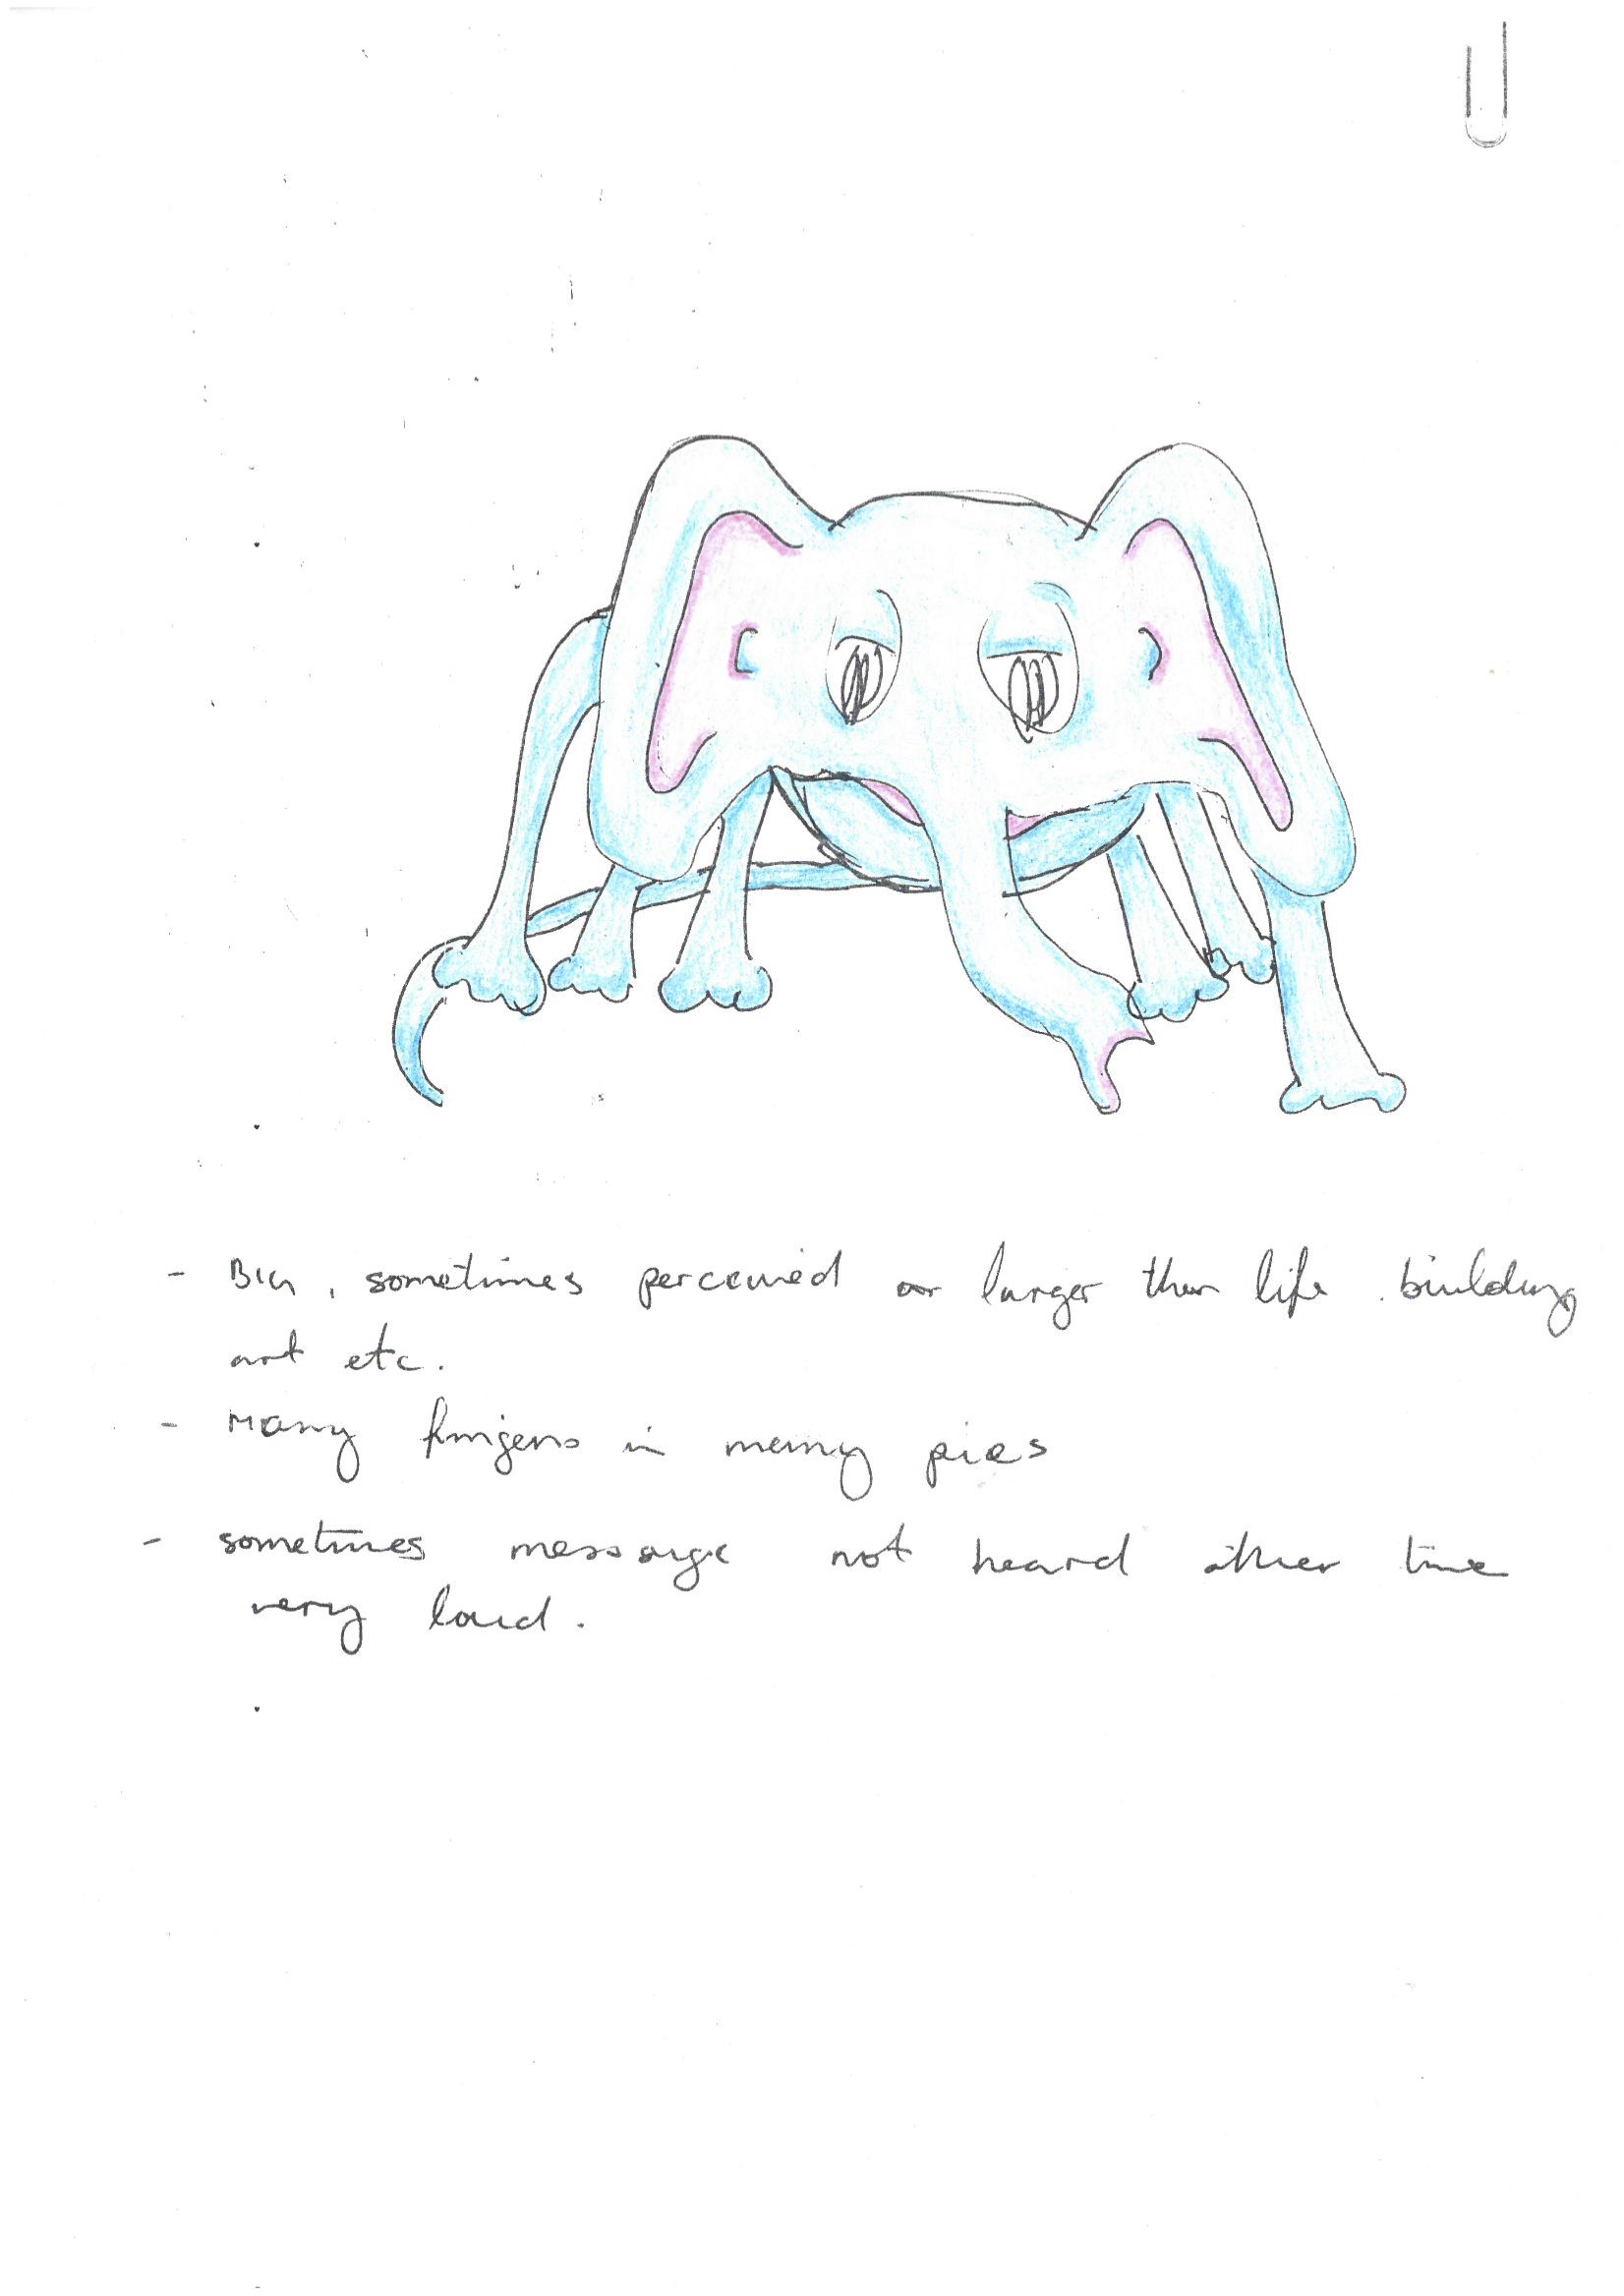 - Big, sometimes perceived as larger than life. building
art etc.
- Many fingers in many pies
- sometimes message not heard other time
very loud.